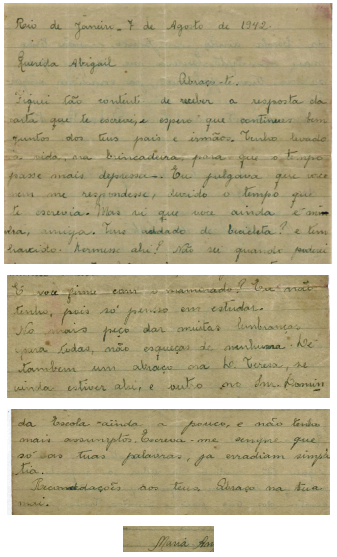 Rio de Janeiro - 7 de Agosto de 1942
Querida Abigail
Abraço-te.
Fiquei tão contente de receber a resposta da
carta que te escrevi, e espero que continues bem
juntos dos teus pais e irmãos. Tenho levado
a vida, na brincadura, para que o tempo
passe mais depressa. - Eu julgava que você
nem me respondesse, devido o tempo que
te escrevia. Mas vi que voce ainda é
amiga. Tens andado de bicicleta? e tem
ahi? Não sei quando poderei
E voce firme com o namorado? Eu não
tenho, pois só penso em estudar.
No mais peço dar muitas lembranças
para todas, não esqueças de nenhuma. Dê
tambem um abraço na D. Tereza, se
ainda estiver ahi, e outro no Snr.
da Escola ainda a pouco, e não tenho
mais assumptos. Escreva-me sempre que
só as tuas palavras, já erradiam simpa
tia.
Recomendações aos teus Abraço na tua
mãi.
Maria